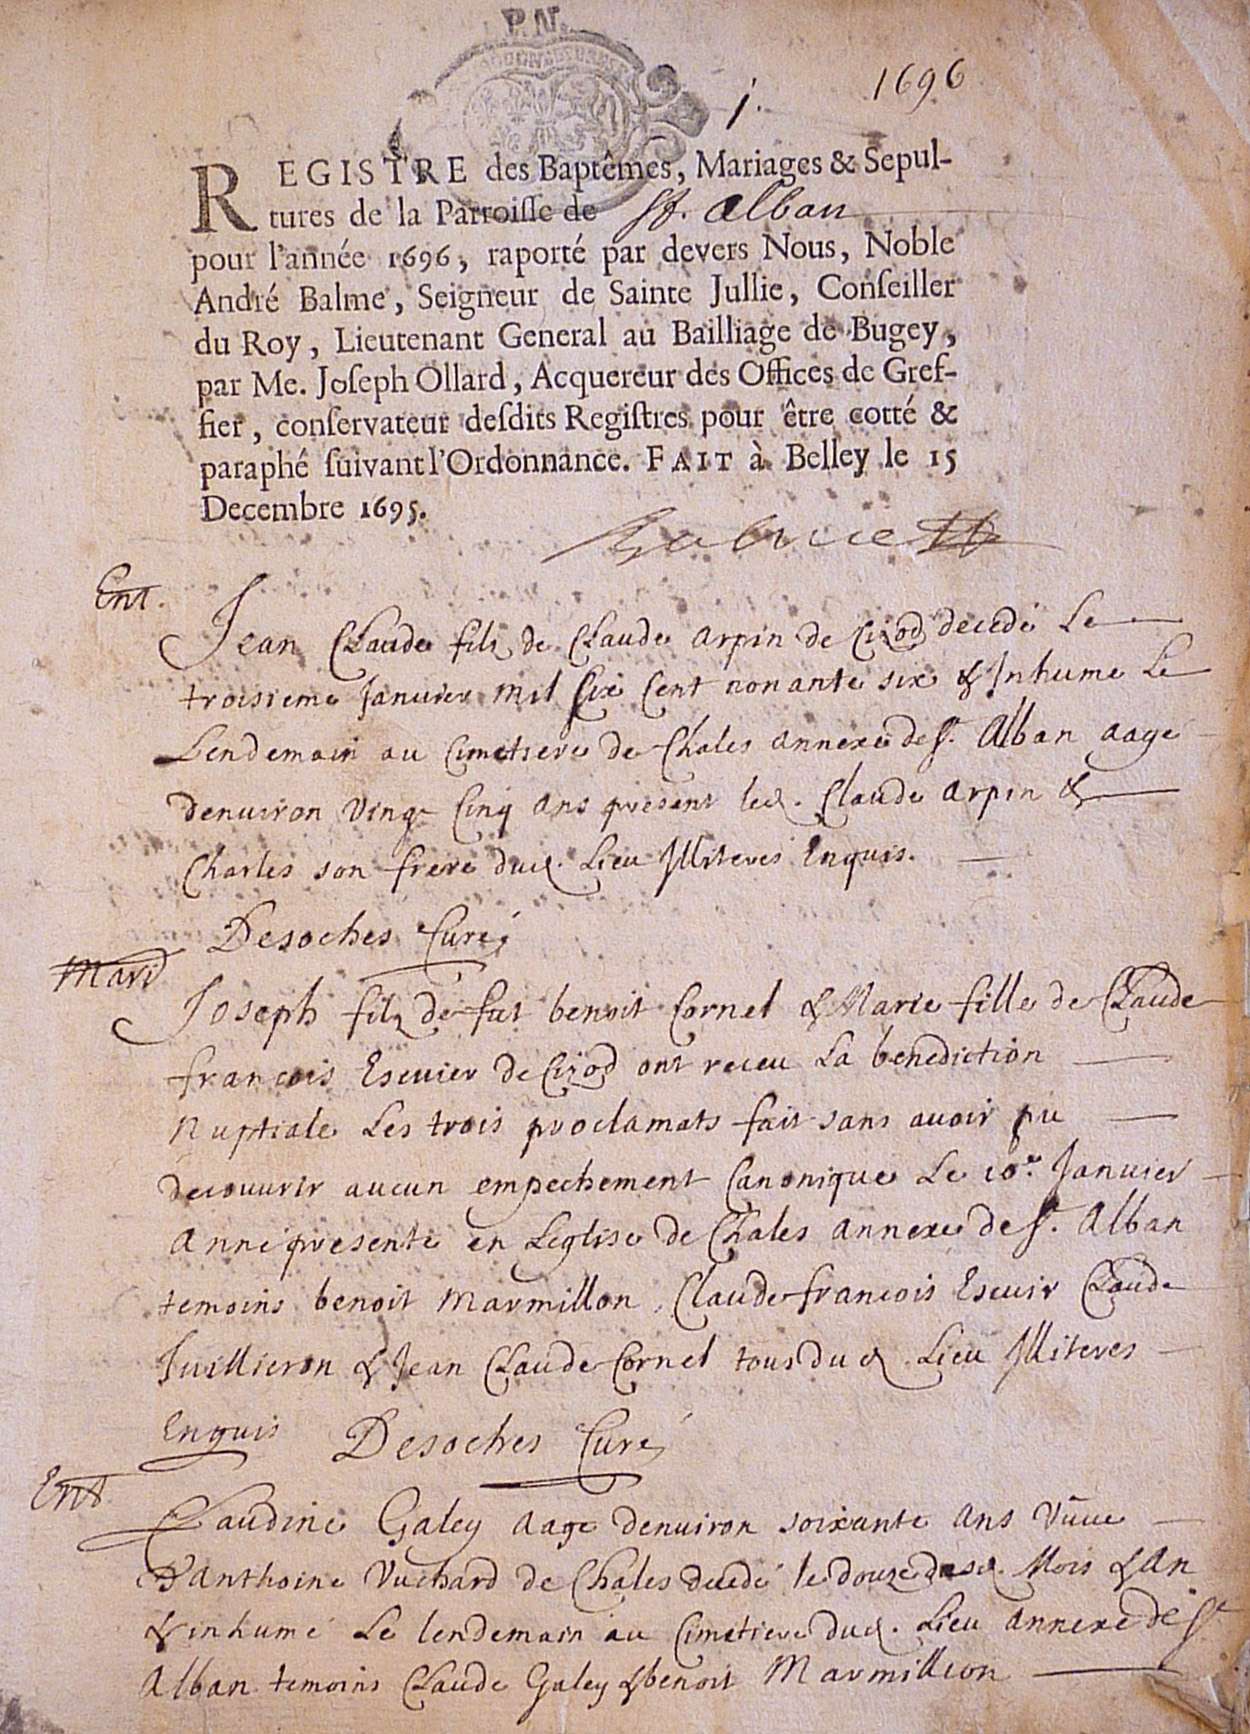 P.N.
1696
1.
REGISTRE des Baptêmes, Mariages & Sepul-
tures de la Parroisse de St. Alban
pour l'année 1696, raporté par devers Nous, Noble
André Balme, Seigneur de Sainte Jullie, Conseiller
du Roy, Lieutenant General au Bailliage de Bugey,
par Me. Joseph Ollard, Acquereur des Offices de Gref-
fier, conservateur desdits Registres pour être cotté &
paraphé suivant l'Ordonnance. FAIT à Belley le 15
Decembre 1695.
Ent.
Jean Claude filz de Claude Arpin de Cizod decedé Le
troisieme Janvier mil six Cent nonante six & Inhume Le
Lendemain au Cimetiere de Chales annexe de St. Alban aage
denuiron Vingt Cinq ans present led. Claude Arpin &
Charles son frere dud. Lieu Illiteres Enquis.
Desoches Curé
Mari
Joseph filz de fut benoit Cornel & Marie fille de Claude
francois Escuier de Cizod ont receu La benediction
Nuptiale Les trois proclamats fait sans auoir pu
decouurir aucun empechement Canonique Le 10e. Januier
Anné presente en Leglise de Chales annexe de St. Alban
temoins benoit Marmillon, Claude francois Escuir Claude
Juillieron & Jean Claude Cornel tous dud. Lieu Illiteres
Enquis Desoches Curé
Ent
Claudine Galey aage denuiron soixante ans Vuue
D'anthoine Vuchard de Chales decedé le douze dud. Mois & An
& inhumé Le lendemain au Cimetiere dud. Lieu annexe de St
Alban temoins Claude Galey & benoit Marmillion